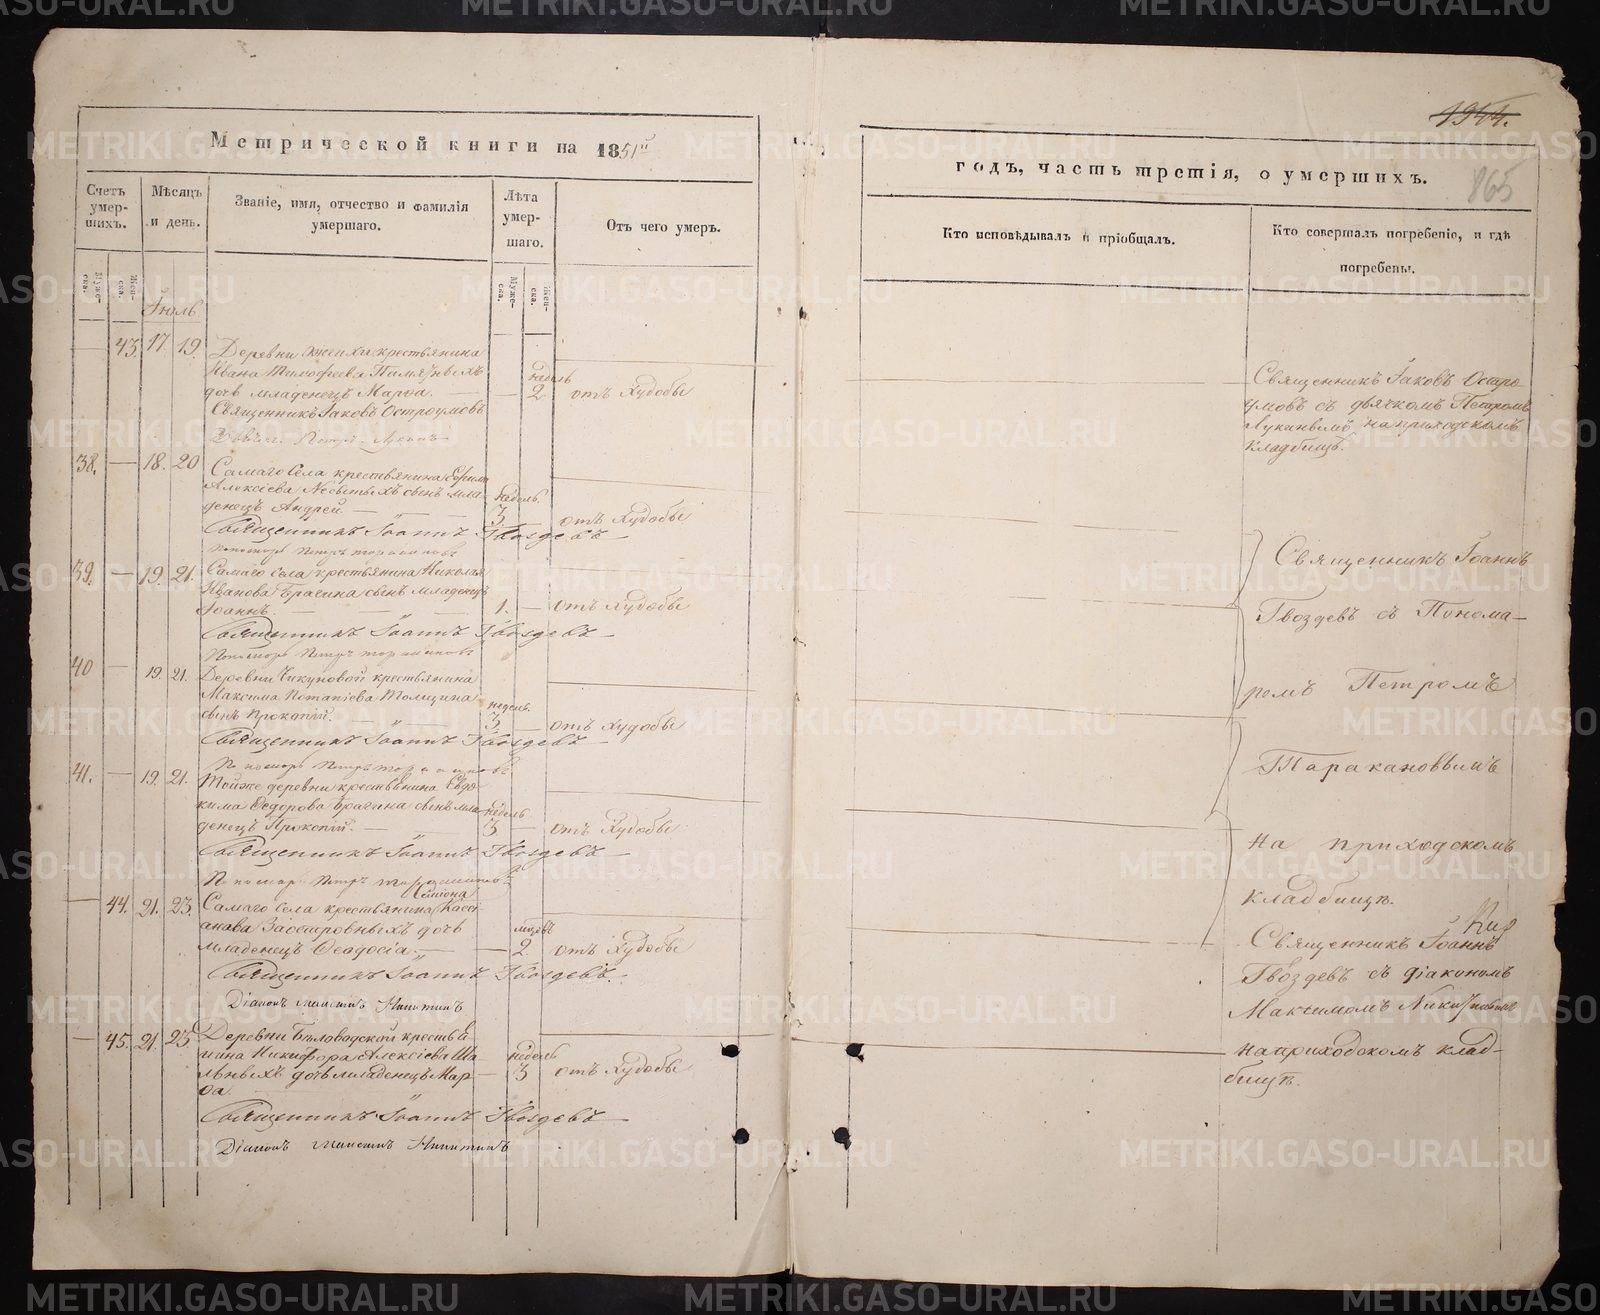 Метрической книги на 1851й
годъ, часть третія, о умершихъ.
1944.
865
Счетъ умер-шихъ.
Мѣсяцъ и день.
Званіе, имя, отчество и фамилія умершаго.
Лѣта умер-шаго.
Отъ чего умеръ.
Кто исповѣдывалъ и пріобщалъ.
Кто совершалъ погребеніе, и гдѣ погребены.
Муже-ска.
Жен-ска.
Муже-ска.
Жен-ска.
Іюль
43. 17. 19.
Деревни крестьянина
Ивана Тимофеева
дочь младенецъ Марѳа.
недель 2
отъ худобы
Священникъ Іаковъ Остроумовъ
Священникъ Іаковъ Остро-
умовъ съ дьячкомъ Петромъ
на приходскомъ
кладбищѣ.
38. 18. 20
Самаго Села крестьянина Ефима
Алексіева Несытыхъ сынъ мла-
денецъ Андрей
недель 3
отъ худобы
Священникъ Іоаннъ Гвоздевъ
Пономарь Петръ Таракановъ
39. 19. 21.
Самаго Села крестьянина Николая
Иванова Брагина сынъ младенецъ
Іоаннъ.
1.
отъ худобы
Священникъ Іоаннъ Гвоздевъ
Пономарь Петръ Таракановъ
40 19. 21.
Деревни Чикуновой крестьянина
Максима Потапіева Толщина
сынъ Прокопій.
недель. 3
отъ худобы
Священникъ Іоаннъ Гвоздевъ
Пономарь Петръ Таракановъ
41. 19. 21.
Тойже деревни крестьянина Евдо-
кима Ѳедорова Брагина сынъ мла-
денецъ Прокопій.
недель 3
отъ худобы
Священникъ Іоаннъ Гвоздевъ
Пономарь Петръ Таракановъ
Священникъ Іоаннъ
Гвоздевъ съ Понома-
ремъ Петромъ
Таракановымъ
на приходскомъ
кладбищѣ.
44. 21. 23.
Самаго Села крестьянина
Заостровныхъ дочь
младенецъ Ѳеодосія.
2
отъ худобы
Священникъ Іоаннъ Гвоздевъ.
Діаконъ Максимъ Никитинъ
45. 21. 23
Деревни Бѣловодской крестья-
нина Никифора Алексіева Ша-
льныхъ дочь младенецъ Мар-
ѳа
недель 3
отъ худобы
Священникъ Іоаннъ Гвоздевъ
Діаконъ Максимъ Никитинъ
Священникъ Іоаннъ
Гвоздевъ съ діакономъ
Максимомъ Никитинымъ
на приходскомъ клад-
бищѣ.
METRIKI.GASO-URAL.RU